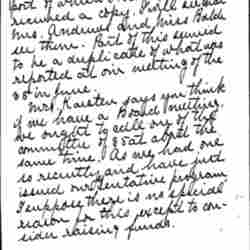 received a copy. I will see that
Mrs. Andrews and Miss Balch
see them. Part of this seemed
to be a duplicate of what was
reported at our meeting of the
28 in June.
Mrs. Karsten says you think
if we have a Board meeting,
we ought to call one of the
committee of 8 at about the
same time. As we had one
so recently and have just
issued our tentative program
I suppose there is no special
reason for this except to con-
sider raising funds.